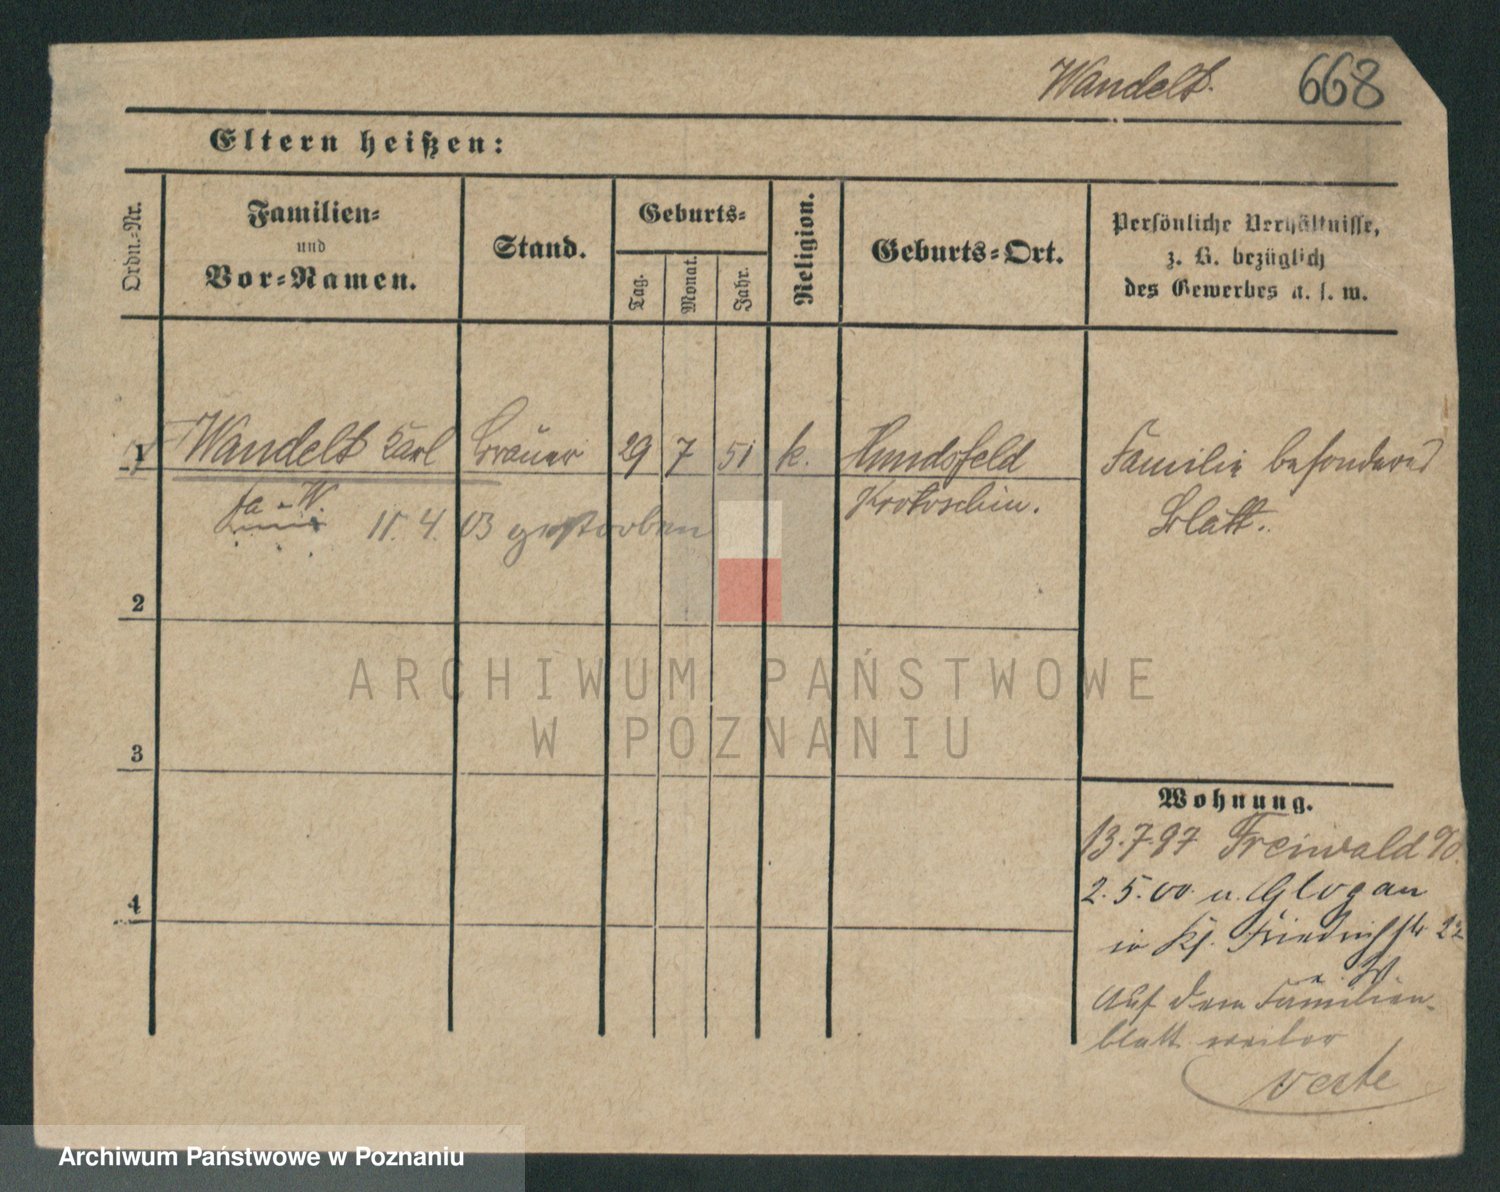 Wandelt. 668
Eltern heißen:
Ordn.-Nr.
Familien-
und
Vor-Namen.
Stand.
Geburts-
Tag.
Monat.
Jahr.
Religion.
Geburts-Ort.
Persönliche Verhältnisse,
z. B. bezüglich
des Gewerbes u. s. w.
1 Wandelt Karl Brauer 29 7 51 k. Hundsfeld Familie besonderes
Krotoschin. Blatt.
11. 4. 03 gestorben
2
3
4
Wohnung.
13.7.97 Freiwald
2.5.00. u. Glogau
in Kl. Friedrichstr 22
u. W.
Auf dem Familien-
blatt weiter
ARCHIWUM PAŃSTWOWE
W POZNANIU
Archiwum Państwowe w Poznaniu